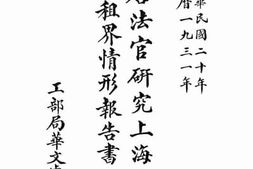 華民國二十年
曆一九三一年
法官研究上海
租界情形報告書
工部局華文